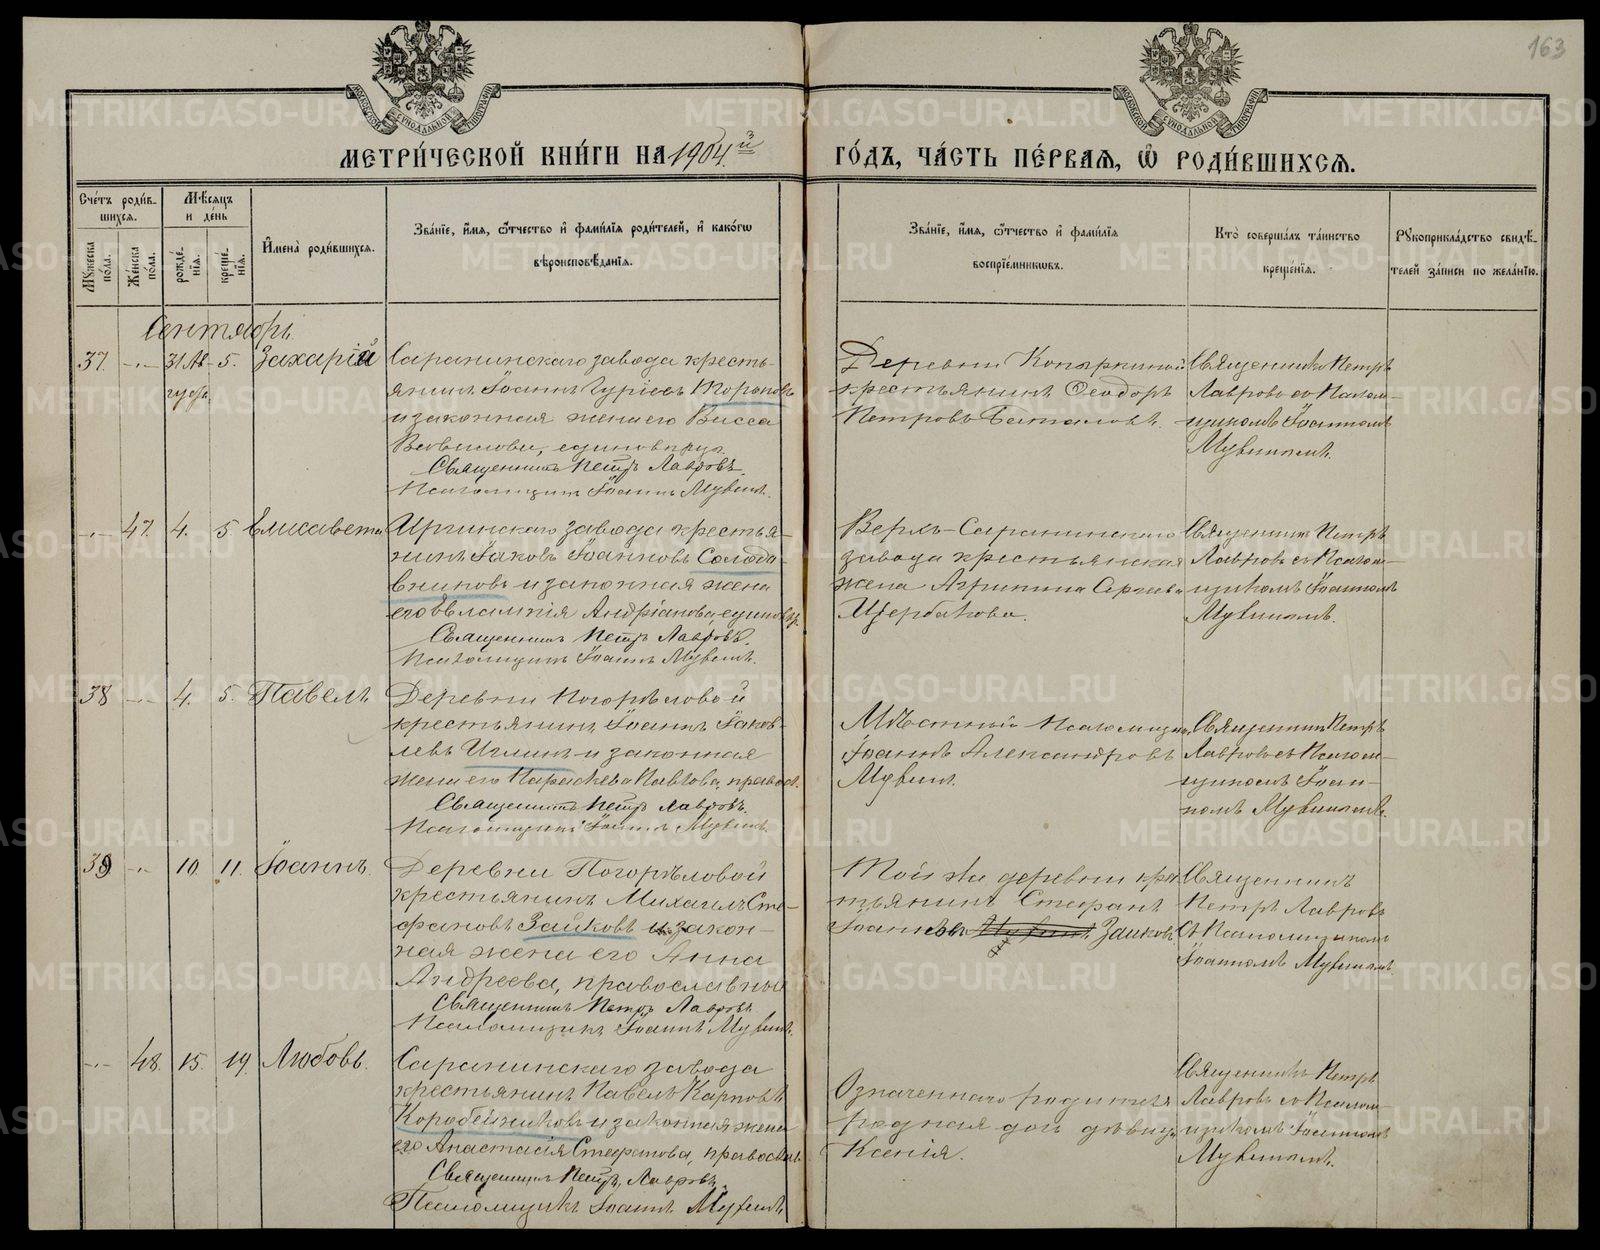 163
МЕТРИ́ЧЕСКОЙ КНИ́ГИ НА 1904й ГО́ДЪ, ЧА́СТЬ ПЕ́РВАѦ, Ѡ҆ РОДИ́ВШИХСѦ.
Сче́тъ роди́в-
шихся.
Мѣ́сяцъ
и де́нь
Му́жеска
по́ла.
Же́нска
по́ла.
рожде́-
нїя.
креще́-
нїя.
И҆мена̀ роди́вшихся.
Зва́нїе, и҆́мя, ѻ҆́тчество и҆ фами́лїя роди́телей, и҆ како́гѡ
вѣроисповѣ́данїя.
Зва́нїе, и҆́мя, ѻ҆́тчество и҆ фами́лїя
воспрїе́мниковъ.
Кто̀ соверша́лъ та́инство
креще́нїя.
Рꙋкоприкла́дство свидѣ́-
телей за́писи по жела́нїю.
Сентябрь
37. -"- 31 Ав- 5. Захарій
густ.
Саранинскаго завода кресть-
янинъ Іоаннъ Гуріевъ Торопов
и законная жена его Васса
Вавилова, единоверц.
Священникъ Петръ Лавровъ.
Псаломщикъ Іоаннъ
Деревни
крестьянинъ Ѳеодоръ
Петровъ Баталовъ.
Священникъ Петръ
Лавровъ съ Псалом-
щикомъ Іоанномъ
-"- 47. 4. 5. Елисавета
Иргинскаго завода крестья-
нинъ Іаковъ Іоанновъ Солода-
вниковъ и законная жена
его Евлампія Андріанова, единовѣр.
Священникъ Петръ Лавровъ.
Псаломщикъ Іоаннъ
Верхъ-Саранинскаго
завода крестьянская
жена Агрипина Сергиева
Щербакова.
Священник Петръ
Лавровъ съ Псалом-
щикомъ Іоанномъ
38 -"- 4. 5. Павелъ
Деревни Погорѣловой
крестьянинъ Іоаннъ Іаков-
левъ и законная
жена его Параскева Павлова, правосл.
Священникъ Петръ Лавровъ.
Псаломщикъ Іоаннъ
Мѣстный Псаломщикъ
Іоаннъ Александровъ
Священникъ Петръ
Лавровъ съ Псалом-
щикомъ Іоан-
номъ
39 -"- 10. 11. Іоаннъ.
Деревни Погорѣловой
крестьянинъ Михаилъ Сте-
фановъ Зайковъ и закон-
ная жена его Анна
Андреева, православные
Священникъ Петръ Лавровъ
Псаломщикъ Іоаннъ
Той же деревни крес
тьянинъ Стефанъ
Іоанновъ Зайковъ
Священникъ
Петръ Лавровъ
съ Псаломщикомъ
Іоанномъ
-"- 48. 15. 19. Любовь.
Саранинскаго завода
крестьянинъ Павелъ Карповъ
Коробейниковъ и законная жена
его Анастасія Стефанова, правосл.
Священникъ Петръ Лавровъ.
Псаломщикъ Іоаннъ
Означеннаго родителя
родная дочь девица
Ксенія.
Священникъ Петръ
Лавровъ съ Псалом-
щикомъ Іоанномъ
METRIKI.GASO-URAL.RU